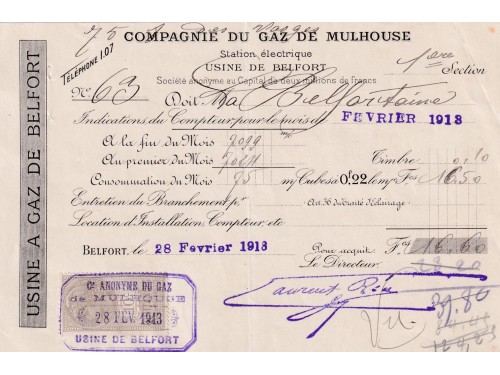 COMPAGNIE DU GAZ DE MULHOUSE
Station électrique
USINE DE BELFORT
1ère Section
Société anonyme au Capital de deux millions de Francs
TÉLÉPHONE 1.07
USINE A GAZ DE BELFORT
N° 63 Doit La Belfortaine
Indications du Compteur pour le mois d FEVRIER 1913
A la fin du Mois 7099
Au premier du Mois Timbre 0,10
Consommation du Mois 75 m/Cubes à 0f22 le m/c Fcs 16.50
Entretien du Branchement pr Art. 36 du Traité d'Eclairage
Location d'Installation Compteur, etc
BELFORT, le 28 Février 1913 Pour acquit Fcs 16.60
Le Directeur
Cie ANONYME DU GAZ
de MULHOUSE
28 FEV 1913
USINE DE BELFORT
39.80